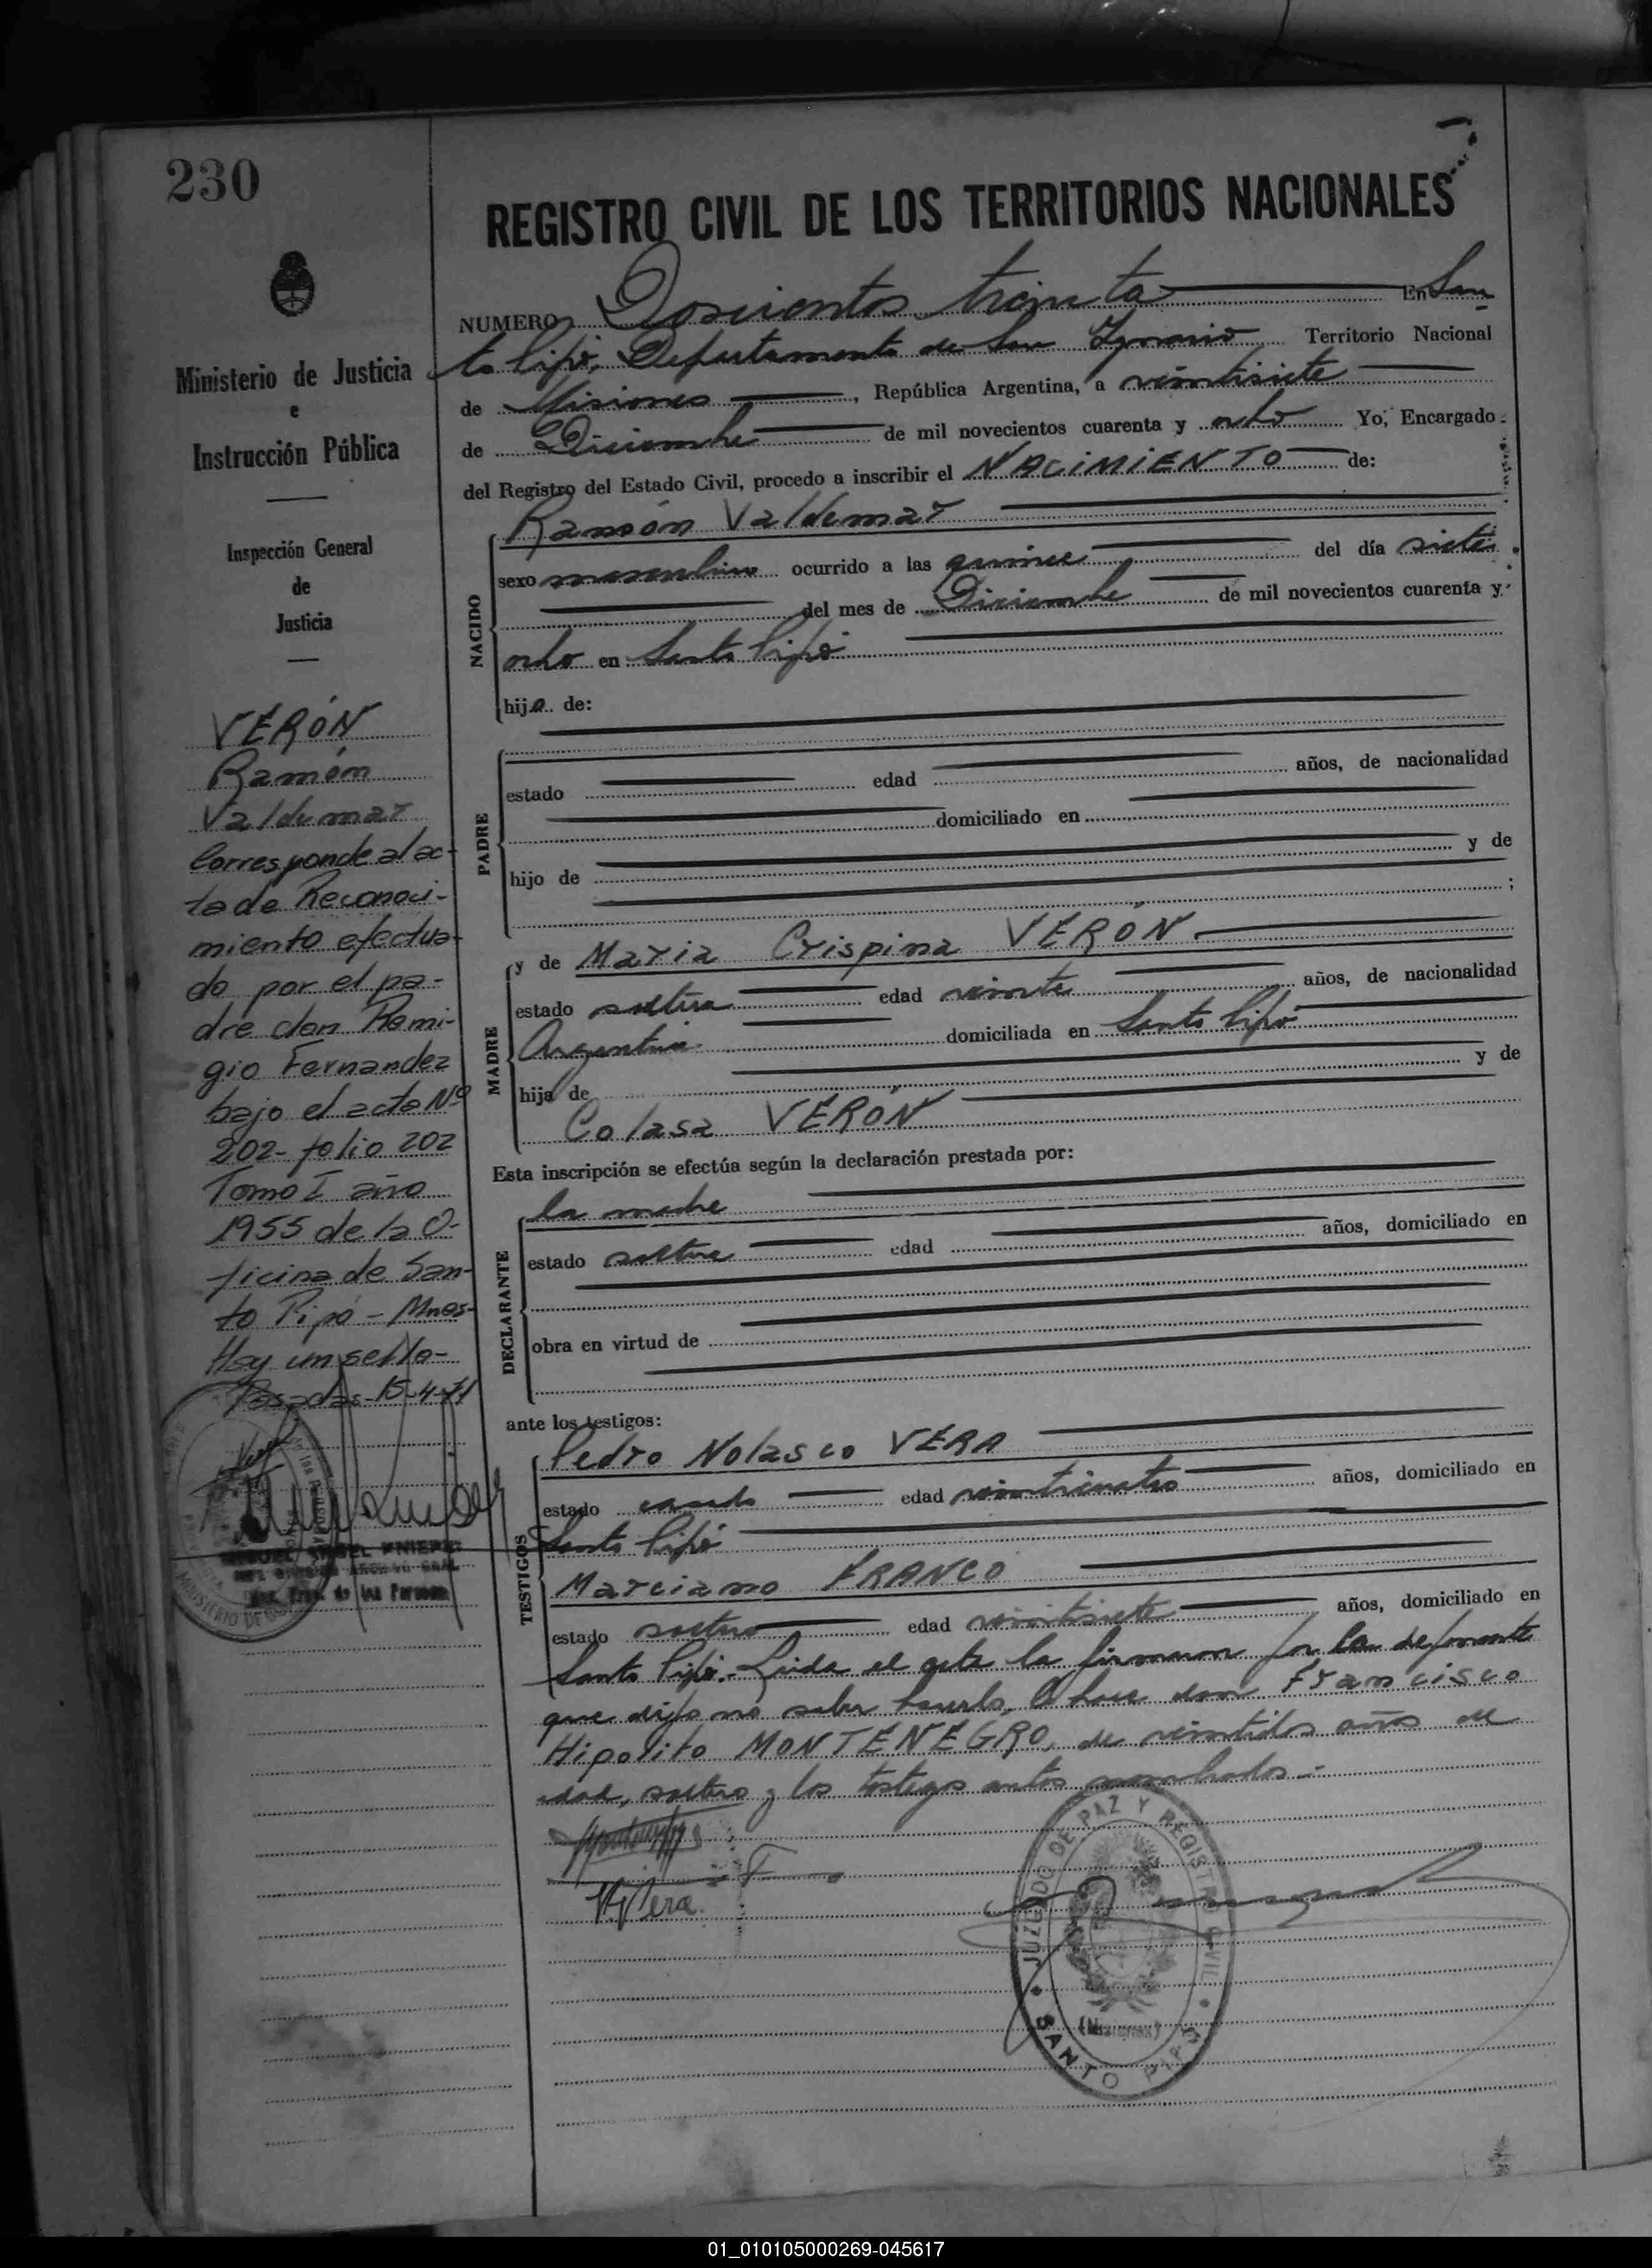 230
REGISTRO CIVIL DE LOS TERRITORIOS NACIONALES
NUMERO Doscientos treinta En San
to Pipó, Departamento de San Ignacio, Territorio Nacional
de Misiones, República Argentina, a veintisiete
de Diciembre de mil novecientos cuarenta y ocho Yo, Encargado
del Registro del Estado Civil, procedo a inscribir el NACIMIENTO de:
Ramón Valdemar
sexo masculino ocurrido a las quince del día siete
del mes de Diciembre de mil novecientos cuarenta y
ocho en Santo Pipó
hijo de:
NACIDO
estado edad años, de nacionalidad
domiciliado en
hijo de y de
;
PADRE
y de Maria Crispina VERÓN
estado soltera edad veinte años, de nacionalidad
Argentina domiciliada en Santo Pipó
hija de y de
Colasa VERÓN
MADRE
Esta inscripción se efectúa según la declaración prestada por:
la madre
estado soltera edad años, domiciliado en
obra en virtud de
DECLARANTE
ante los testigos:
Pedro Nolasco VERA
estado casado edad veinticuatro años, domiciliado en
Santo Pipó
Marciano FRANCO
estado soltero edad veintisiete años, domiciliado en
TESTIGOS
Santo Pipó. Leida el acta la firmaron por la deponente
que dijo no saber hacerlo, lo hace don Francisco
Hipolito MONTENEGRO, de veintidos años de
edad, soltero y los testigos antes nombrados.-
Vera
JUZGADO DE PAZ Y REGISTRO CIVIL
(Misiones)
SANTO PIPÓ
Ministerio de Justicia
e
Instrucción Pública
Inspección General
de
Justicia
VERÓN
Ramón
Valdemar
Corresponde al ac-
ta de Reconoci-
miento efectua-
do por el pa-
dre don Remi-
gio Fernandez
bajo el acta Nº
202- folio 202
Tomo I año
1955 de la O-
ficina de San-
to Pipó - Mnes-
Hay un sello-
Posadas-15-4-71
MINISTERIO DE
01_010105000269-045617